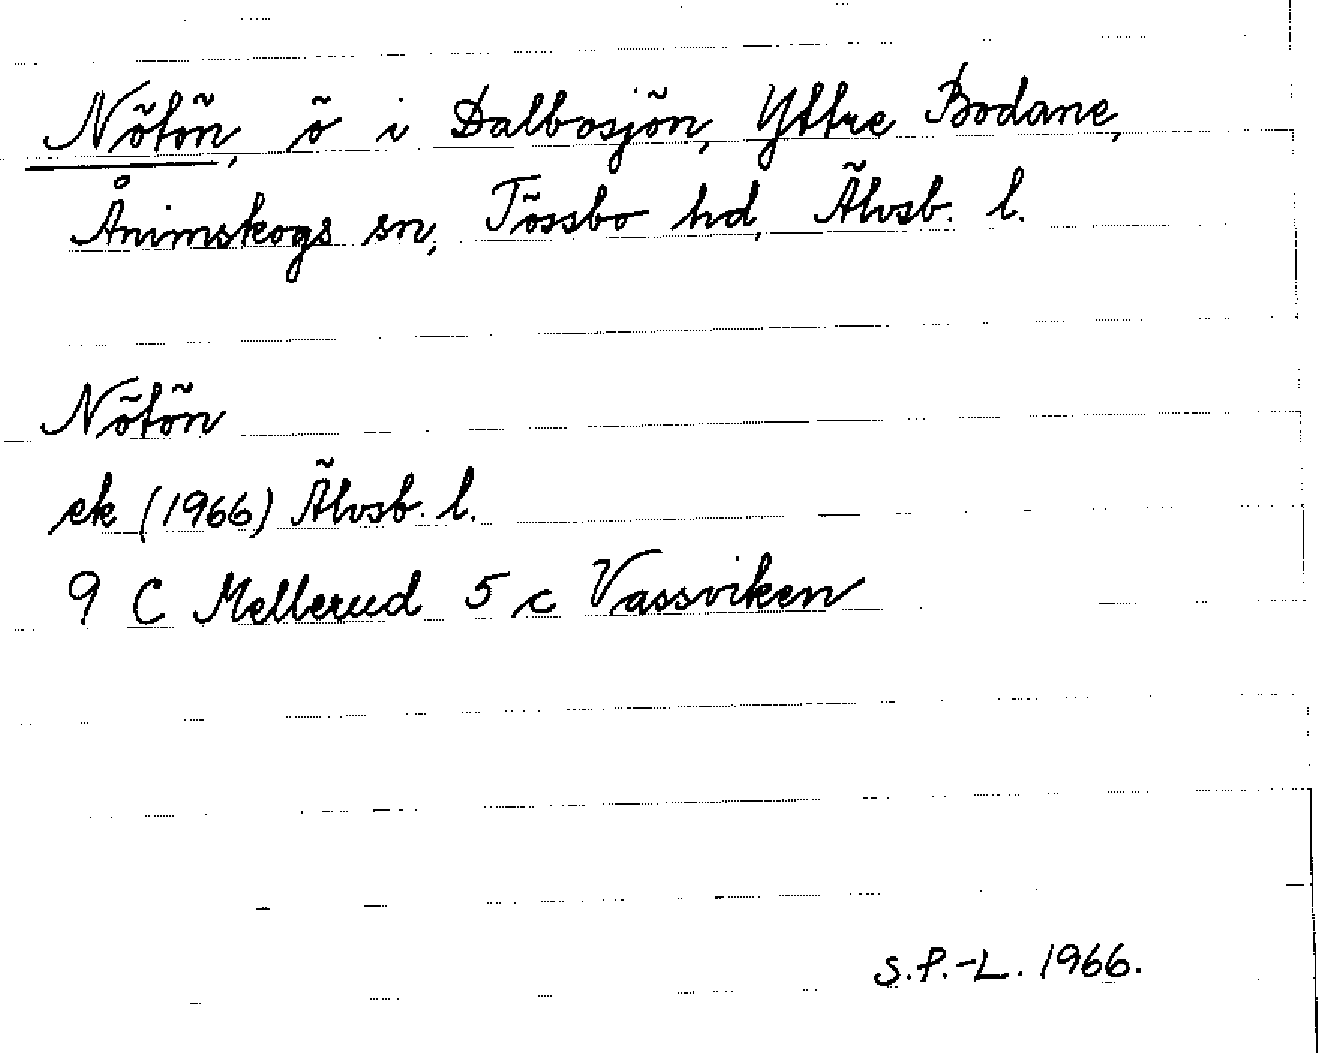 Nötön, ö i Dalbosjön, Yttre Bodane,
Ånimskogs sn, Tössbo hd, Älvsb. l.
Nötön
ek (1966) Älvsb. l.
9 C Mellerud 5 c Vassviken
S.P.-L. 1966.